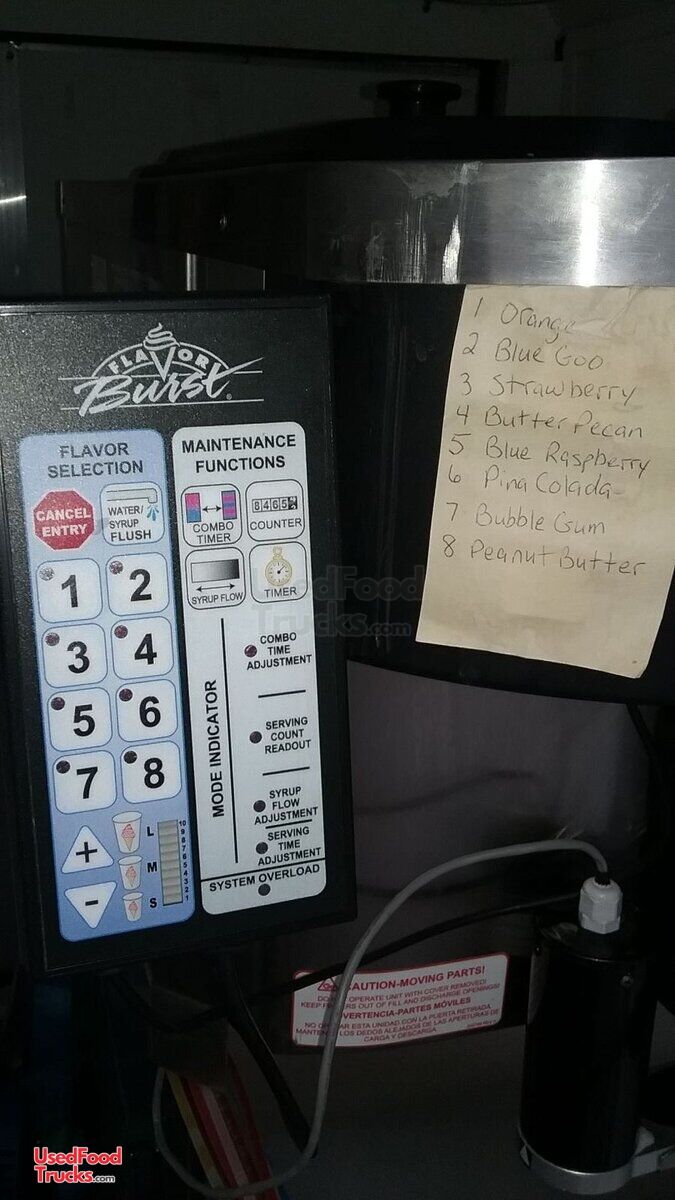 FLAVOR
Burst®
FLAVOR
SELECTION
CANCEL
ENTRY
WATER/
SYRUP
FLUSH
1
2
3
4
5
6
7
8
+
-
L
M
S
10
9
8
7
6
5
4
3
2
1
MAINTENANCE
FUNCTIONS
COMBO
TIMER
8465
COUNTER
SYRUP FLOW
TIMER
MODE INDICATOR
COMBO
TIME
ADJUSTMENT
SERVING
COUNT
READOUT
SYRUP
FLOW
ADJUSTMENT
SERVING
TIME
ADJUSTMENT
SYSTEM OVERLOAD
1 Orange
2 Blue Goo
3 Strawberry
4 Butter Pecan
5 Blue Raspberry
6 Pina Colada
7 Bubble Gum
8 Peanut Butter
UsedFood
Trucks.com
CAUTION-MOVING PARTS!
OPERATE UNIT WITH COVER REMOVED!
KEEP OUT OF FILL AND DISCHARGE OPENINGS!
VERTENCIA-PARTES MÓVILES
ESTA UNIDAD CON LA PUERTA RETIRADA,
LOS DEDOS ALEJADOS DE LAS APERTURAS DE
CARGA Y DESCARGA
UsedFood
Trucks.com